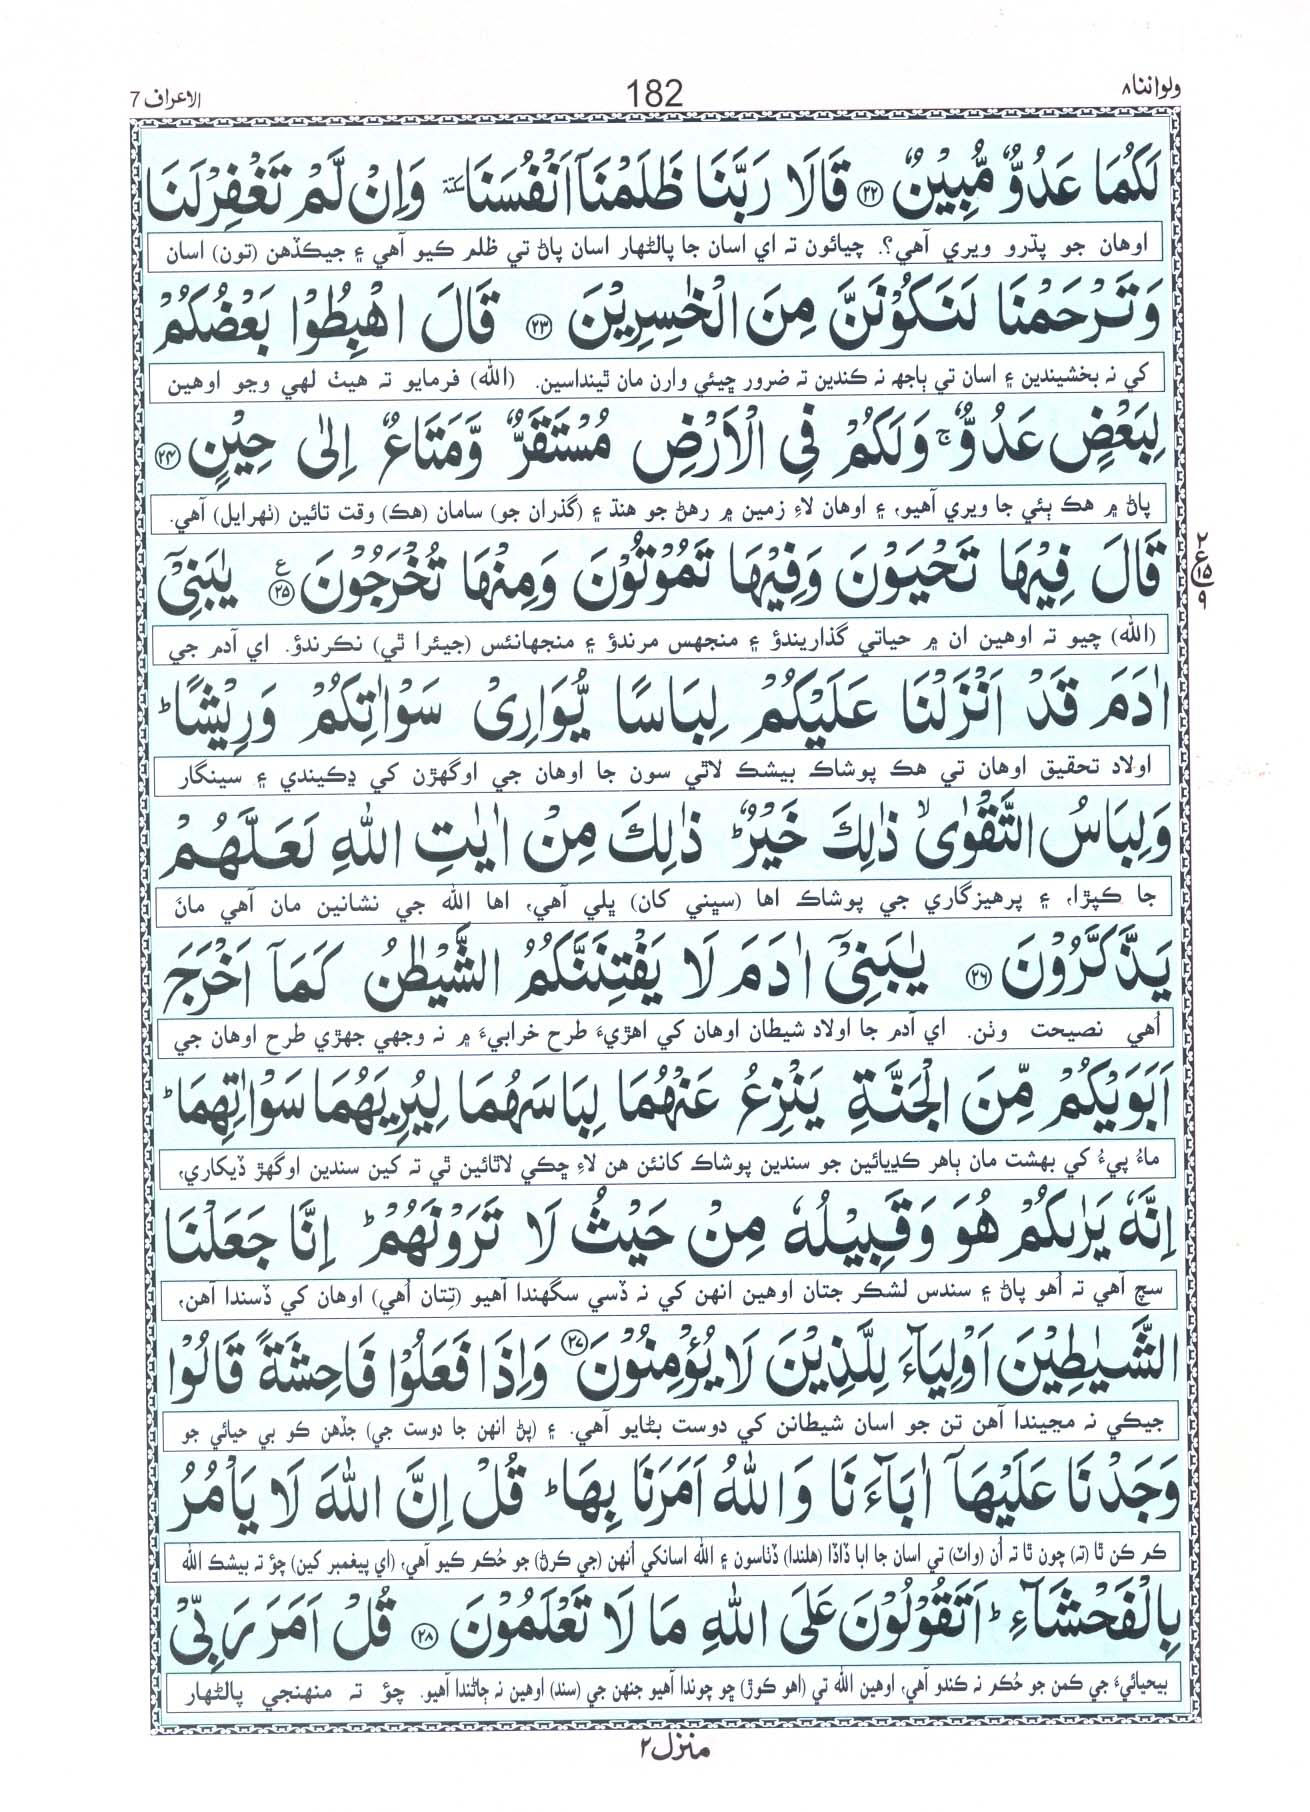 ولواننا ٨ 182 الاعراف 7
لَكُمَا عَدُوٌّ مُّبِيْنٌ ﴿٢٢﴾ قَالَا رَبَّنَا ظَلَمْنَآ اَنْفُسَنَا سكتة وَاِنْ لَّمْ تَغْفِرْلَنَا
اوهان جو پڌرو ويري آهي؟. چيائون ته اي اسان جا پالڻهار اسان پاڻ تي ظلم ڪيو آهي ۽ جيڪڏهن (تون) اسان
وَتَرْحَمْنَا لَنَكُوْنَنَّ مِنَ الْخٰسِرِيْنَ ﴿٢٣﴾ قَالَ اهْبِطُوْا بَعْضُكُمْ
کي نه بخشيندين ۽ اسان تي ٻاجهه نه ڪندين ته ضرور ڇيئي وارن مان ٿينداسين. (الله) فرمايو ته هيٺ لهي وڃو اوهين
لِبَعْضٍ عَدُوٌّ ۚ وَلَكُمْ فِي الْاَرْضِ مُسْتَقَرٌّ وَّمَتَاعٌ اِلٰى حِيْنٍ ﴿٢٤﴾
پاڻ ۾ هڪ ٻئي جا ويري آهيو، ۽ اوهان لاءِ زمين ۾ رهڻ جو هنڌ ۽ (گذران جو) سامان (هڪ) وقت تائين (ٺهرايل) آهي.
قَالَ فِيْهَا تَحْيَوْنَ وَفِيْهَا تَمُوْتُوْنَ وَمِنْهَا تُخْرَجُوْنَ ﴿٢٥﴾ ع يٰبَنِيْٓ
٢ ع ١٥ ٩
(الله) چيو ته اوهين ان ۾ حياتي گذاريندؤ ۽ منجهس مرندؤ ۽ منجهانئس (جيئرا ٿي) نڪرندؤ. اي آدم جي
اٰدَمَ قَدْ اَنْزَلْنَا عَلَيْكُمْ لِبَاسًا يُّوَارِيْ سَوْاٰتِكُمْ وَرِيْشًا ؕ
اولاد تحقيق اوهان تي هڪ پوشاڪ بيشڪ لاٿي سون جا اوهان جي اوگهڙن کي ڍڪيندي ۽ سينگار
وَلِبَاسُ التَّقْوٰى ۙ ذٰلِكَ خَيْرٌ ؕ ذٰلِكَ مِنْ اٰيٰتِ اللّٰهِ لَعَلَّهُمْ
جا ڪپڙا، ۽ پرهيزگاري جي پوشاڪ اها (سڀني کان) ڀلي آهي، اها الله جي نشانين مان آهي مانَ
يَذَّكَّرُوْنَ ﴿٢٦﴾ يٰبَنِيْٓ اٰدَمَ لَا يَفْتِنَنَّكُمُ الشَّيْطٰنُ كَمَآ اَخْرَجَ
اُهي نصيحت وٺن. اي آدم جا اولاد شيطان اوهان کي اهڙيءَ طرح خرابيءَ ۾ نه وجهي جهڙي طرح اوهان جي
اَبَوَيْكُمْ مِّنَ الْجَنَّةِ يَنْزِعُ عَنْهُمَا لِبَاسَهُمَا لِيُرِيَهُمَا سَوْاٰتِهِمَا ؕ
ماءُ پيءُ کي بهشت مان ٻاهر ڪڍيائين جو سندين پوشاڪ کانئن هن لاءِ ڇڪي لاٿائين ٿي ته کين سندين اوگهڙ ڏيکاري،
اِنَّهٗ يَرٰىكُمْ هُوَ وَقَبِيْلُهٗ مِنْ حَيْثُ لَا تَرَوْنَهُمْ ؕ اِنَّا جَعَلْنَا
سچ آهي ته اُهو پاڻ ۽ سندس لشڪر جتان اوهين انهن کي نه ڏسي سگهندا آهيو (تِتان اُهي) اوهان کي ڏسندا آهن،
الشَّيٰطِيْنَ اَوْلِيَآءَ لِلَّذِيْنَ لَا يُؤْمِنُوْنَ ﴿٢٧﴾ وَاِذَا فَعَلُوْا فَاحِشَةً قَالُوْا
جيڪي نه مڃيندا آهن تن جو اسان شيطانن کي دوست بڻايو آهي. ۽ (پڻ انهن جا دوست جي) جڏهن ڪو بي حيائي جو
وَجَدْنَا عَلَيْهَآ اٰبَآءَنَا وَاللّٰهُ اَمَرَنَا بِهَا ؕ قُلْ اِنَّ اللّٰهَ لَا يَاْمُرُ
ڪم ڪن ٿا (ته) چون ٿا ته اُن (واٽ) تي اسان جا ابا ڏاڏا (هلندا) ڏٺاسون ۽ الله اسانکي اُنهن (جي ڪرڻ) جو حُڪم ڪيو آهي، (اي پيغمبر کين) چؤ ته بيشڪ الله
بِالْفَحْشَآءِ ؕ اَتَقُوْلُوْنَ عَلَى اللّٰهِ مَا لَا تَعْلَمُوْنَ ﴿٢٨﴾ قُلْ اَمَرَ رَبِّيْ
بيحيائيءَ جي ڪمن جو حُڪم نه ڪندو آهي، اوهين الله تي (اهو ڪوڙ) ڇو چوندا آهيو جنهن جي (سند) اوهين نه ڄاڻندا آهيو. چؤ ته منهنجي پالڻهار
منزل ٢